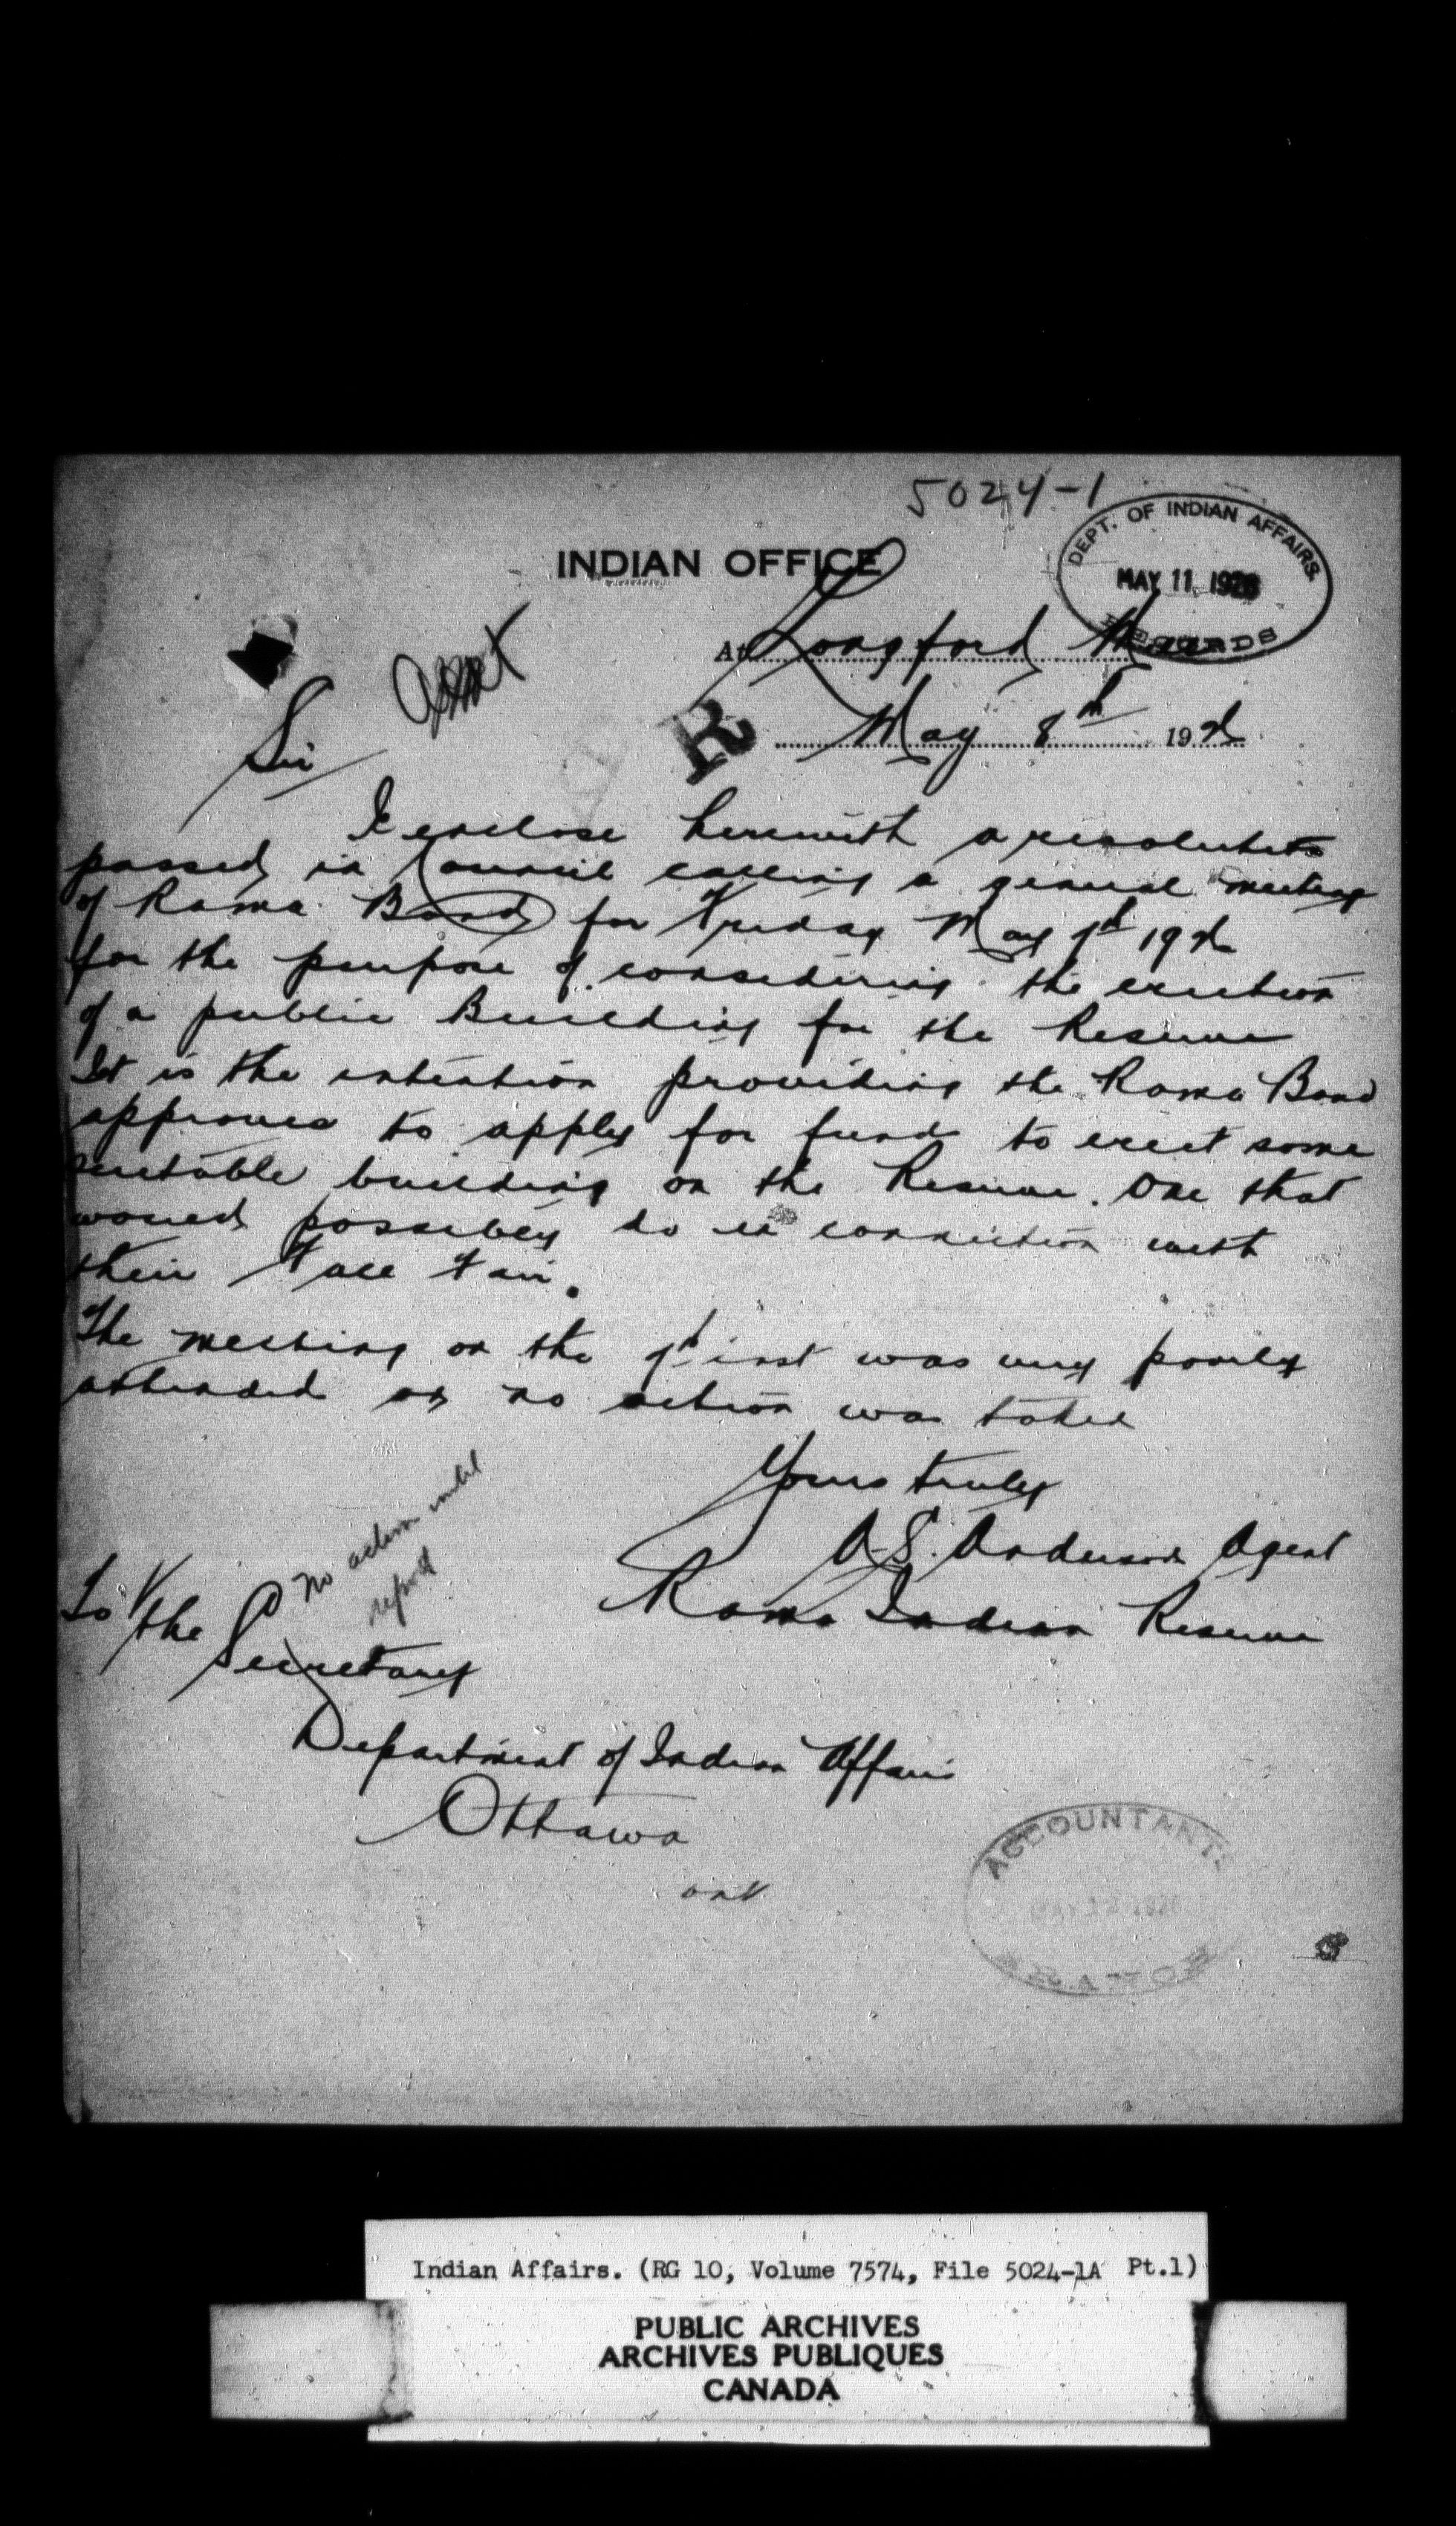 5024-1
INDIAN OFFICE
DEPT. OF INDIAN AFFAIRS.
MAY 11 1926
RECORDS
At Longford Mills
R
May 8th 192
Sir
I enclose herewith a resolution
passed in Council calling a general meeting
of Rama Band for Friday May 7th 192
for the purpose of considering the erection
of a public Building for the Reserve
It is the intention providing the Rama Band
approves to apply for funds to erect some
suitable building on the Reserve. One that
would possibly do in connection with
their Fall Fair.
The meeting on the 7th inst was very poorly
attended so no action was taken
Yours truly
A. S. Anderson Agent
Rama Indian Reserve
No action until
report
To the
Secretary
Department of Indian Affairs
Ottawa
Ont
ACCOUNTANT'S
MAY 12 1926
BRANCH
Indian Affairs. (RG 10, Volume 7574, File 5024-1A Pt.1)
PUBLIC ARCHIVES
ARCHIVES PUBLIQUES
CANADA